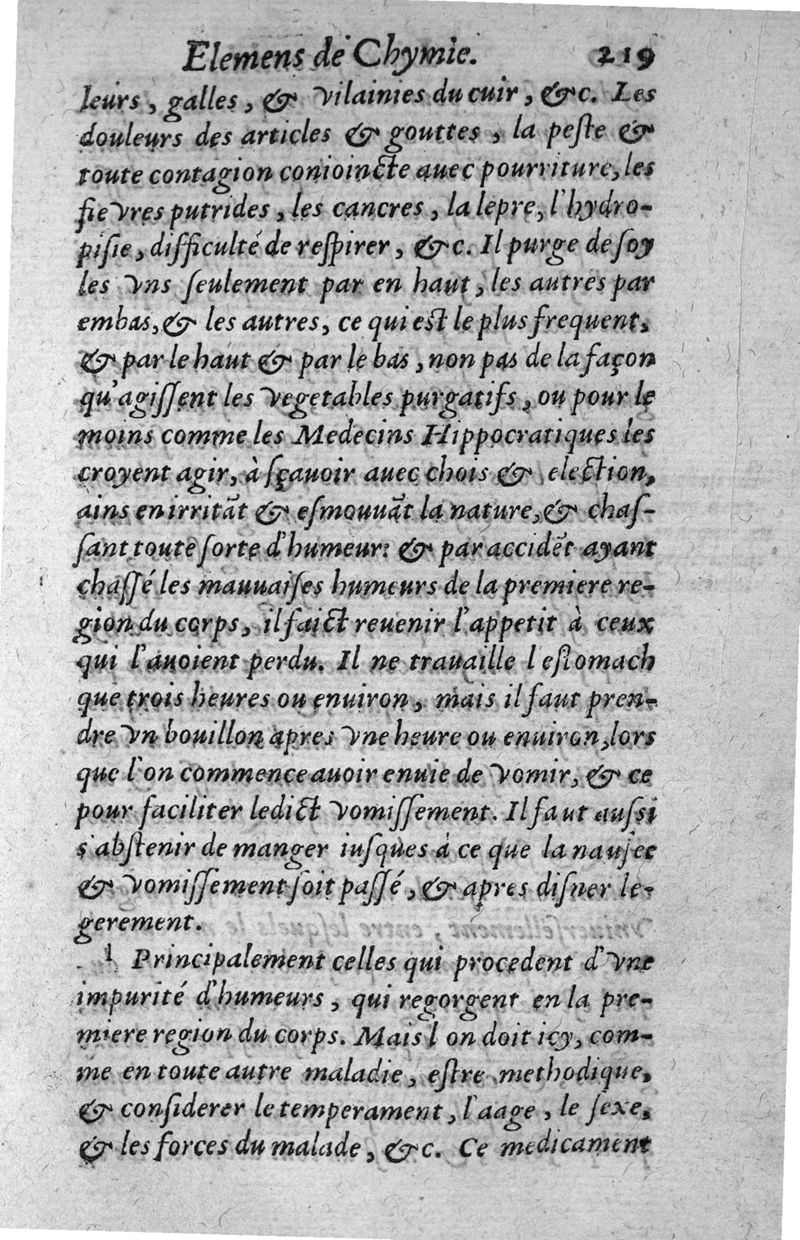 Elemens de Chymie. 219
leurs, galles, & vilainies du cuir, &c. Les
douleurs des articles & gouttes, la peſte &
toute contagion conioincte auec pourriture, les
fievres putrides, les cancres, la lepre, l'hydro-
piſie, difficulté de reſpirer, &c. Il purge de ſoy
les vns ſeulement par en haut, les autres par
embas, & les autres, ce qui est le plus frequent,
& par le haut & par le bas, non pas de la façon
qu'agiſſent les vegetables purgatifs, ou pour le
moins comme les Medecins Hippocratiques les
croyent agir, à ſçauoir auec chois & election,
ains en irritāt & eſmouuāt la nature, & chaſ-
ſant toute ſorte d'humeur: & par accidēt ayant
chaſſé les mauuaiſes humeurs de la premiere re-
gion du corps, il faict reuenir l'appetit à ceux
qui l'auoient perdu. Il ne trauaille l'eſtomach
que trois heures ou enuiron, mais il faut pren-
dre vn bouillon apres vne heure ou enuiron, lors
que l'on commence auoir enuie de vomir, & ce
pour faciliter ledict vomiſſement. Il faut auſsi
s'abſtenir de manger iuſques à ce que la nauſee
& vomiſſement ſoit paſſé, & apres diſner le-
gerement.
1 Principalement celles qui procedent d'vne
impurité d'humeurs, qui regorgent en la pre-
miere region du corps. Mais l'on doit icy, com-
me en toute autre maladie, eſtre methodique,
& conſiderer le temperament, l'aage, le ſexe,
& les forces du malade, &c. Ce medicament